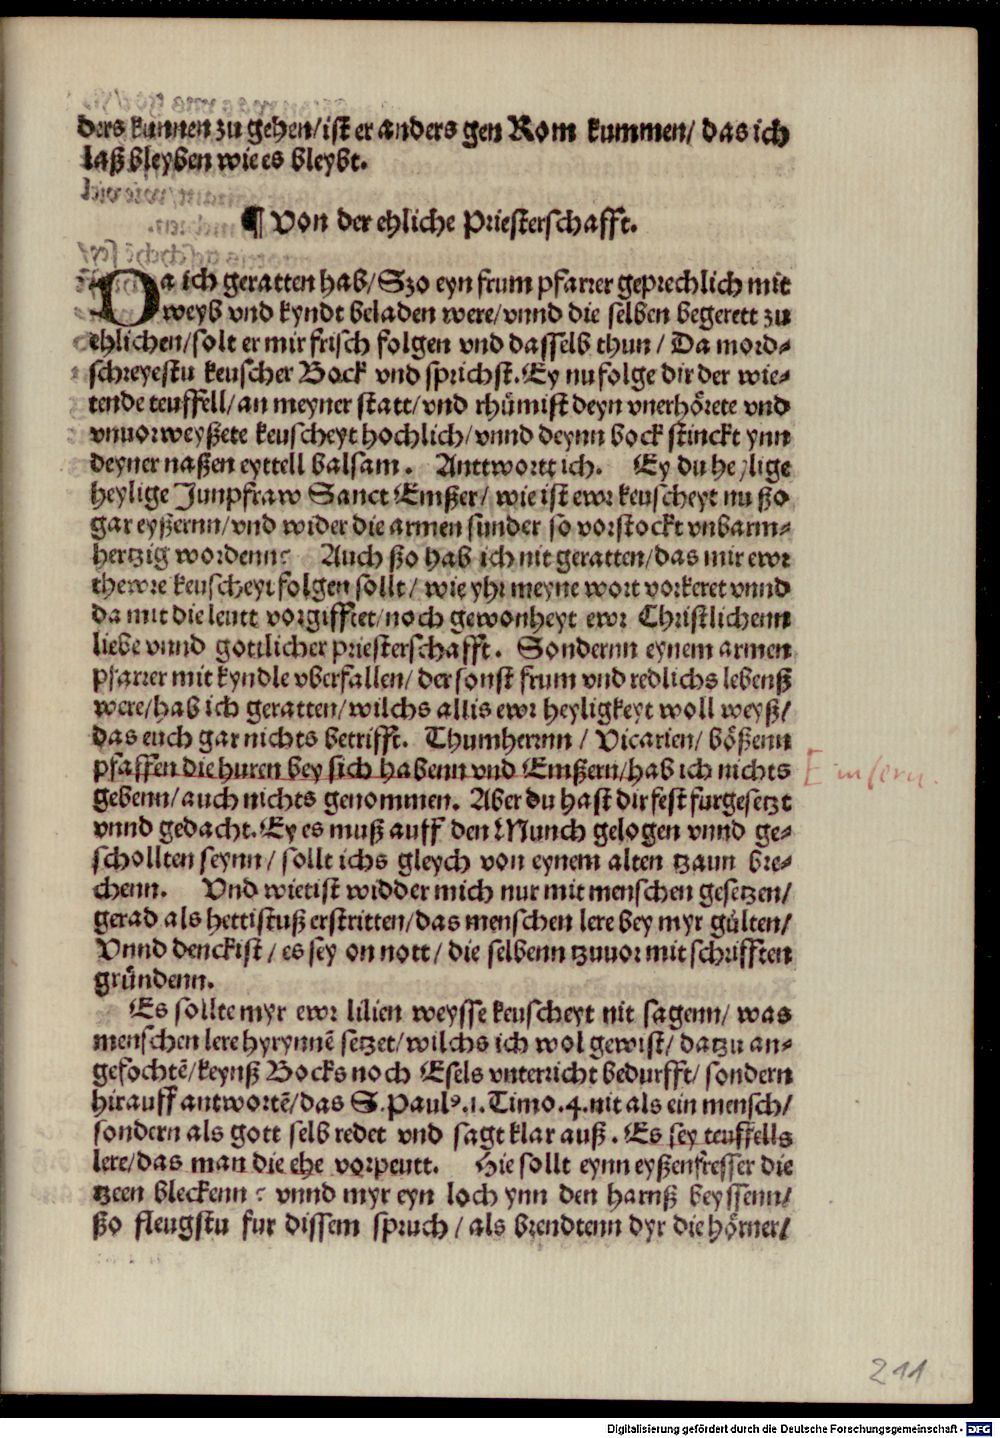 ders kunnen zu gehen/ist er anders gen Rom kummen/ das ich
laß bleyben wie es bleybt.
¶ Von der ehliche Priesterschafft.
Da ich geratten hab/Szo eyn frum pfarrer geprechlich mit
weyb vnd kyndt beladen were/vnnd die selben begerett zu
ehlichen/solt er mir frisch folgen vnd dasselb thun/ Da mord⸗
schreyestu keuscher Bock vnd sprichst.Ey nu folge dir der wie⸗
tende teuffell/an meyner statt/vnd rhümist deyn vnerhörete vnd
vnuorweyßete keuscheyt hochlich/vnnd deynn bock stinckt ynn
deyner naßen eyttell balsam. Anttwortt ich. Ey du heylige
heylige Junpfraw Sanct Emßer/ wie ist ewr keuscheyt nu ßo
gar eyßernn/vnd wider die armen sunder so vorstockt vnbarm⸗
hertzig wordenn? Auch ßo hab ich nit geratten/das mir ewr
thewre keuscheyt folgen sollt/ wie yhr meyne wort vorkeret vnnd
da mit die leutt vorgifftet/noch gewonheyt ewr Christlichenn
liebe vnnd gottlicher priesterschafft. Sondernn eynem armen
pfarrer mit kyndle vberfallen/ der sonst frum vnd redlichs lebenß
were/hab ich geratten/wilchs allis ewr heyligkeyt woll weyß/
das euch gar nichts betrifft. Thumherrnn/ Vicarien/ bößenn
pfaffen die huren bey sich habenn vnd Emßern/hab ich nichts
Emsern.
gebenn/auch nichts genommen. Aber du hast dir fest furgesetzt
vnnd gedacht.Ey es muß auff den Munch gelogen vnnd ge⸗
schollten seynn/ sollt ichs gleych von eynem alten tzaun bre⸗
chenn. Vnd wietist widder mich nur mit menschen gesetzen/
gerad als hettistuß erstritten/das menschen lere bey myr gülten/
Vnnd denckist/ es sey on nott/ die selbenn tzuuor mit schrifften
gründenn.
Es sollte myr ewr lilien weysse keuscheyt nit sagenn/ was
menschen lere hyrynnē setzet/wilchs ich wol gewist/ datzu an⸗
gefochtē/keynß Bocks noch Esels vnterricht bedurfft/ sondern
hirauff antwortē/das S.Paulꝰ.1.Timo.4.nit als ein mensch/
sondern als gott selb redet vnd sagt klar auß. Es sey teuffells
lere/das man die ehe vorpeutt. Hie sollt eynn eyßenfresser die
tzeen bleckenn? vnnd myr eyn loch ynn den harnß beyssenn/
ßo fleugstu fur dissem spruch/ als brendtenn dyr die hörner/
211
Digitalisierung gefördert durch die Deutsche Forschungsgemeinschaft - DFG